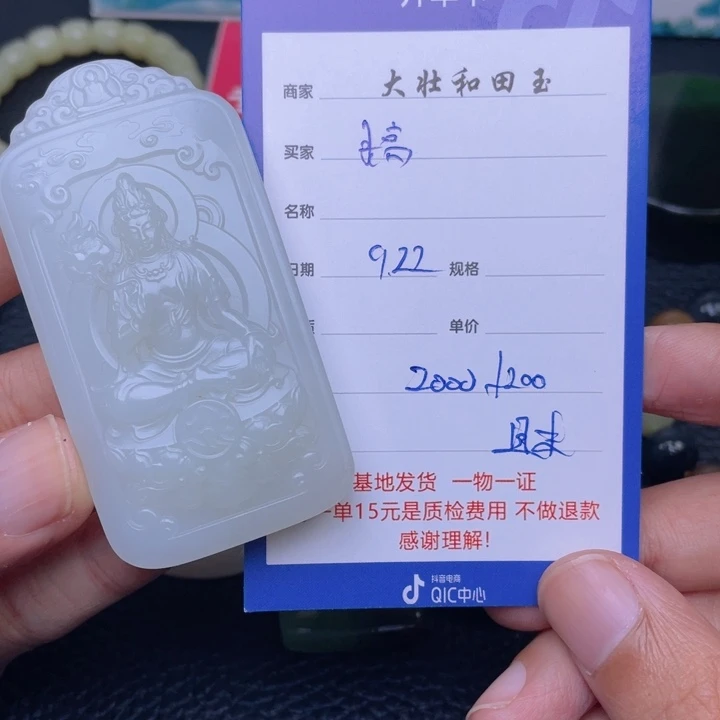 商家 大壮和田玉
买家
名称
日期 9.22 规格
单价
2000 /200
基地发货 一物一证
一单15元是质检费用 不做退款
感谢理解!
抖音电商
QIC中心